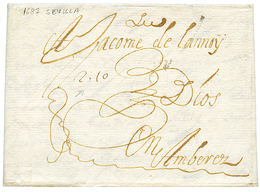 1687 SEVILLA
A Jacome de lannoy
2:10
Dios
En
Amberez